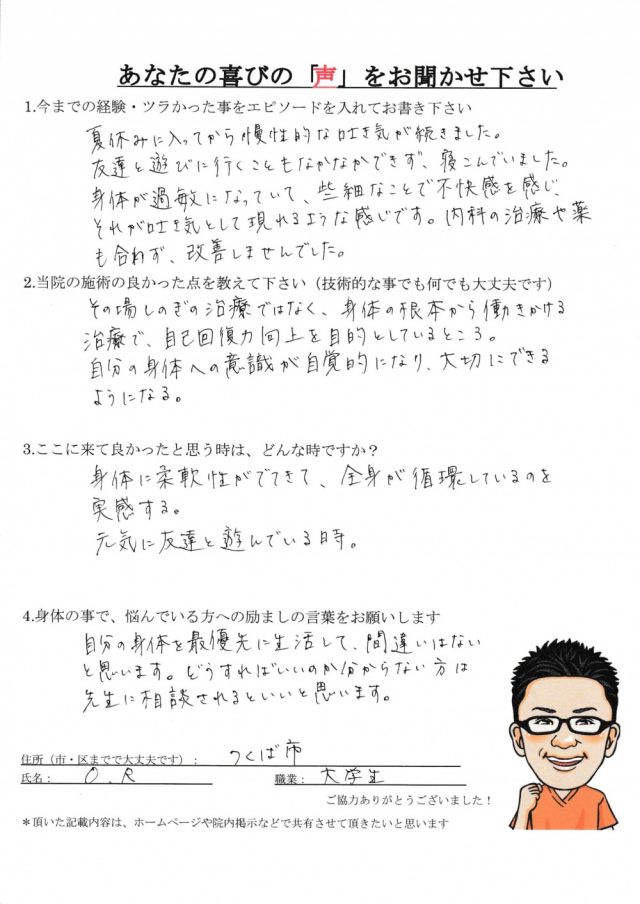 あなたの喜びの「声」をお聞かせ下さい
1.今までの経験・ツラかった事をエピソードを入れてお書き下さい
夏休みに入ってから慢性的な吐き気が続きました。
友達と遊びに行くこともなかなかできず、寝こんでいました。
身体が過敏になっていて、些細なことで不快感を感じ、
それが吐き気として現れるような感じです。内科の治療や薬
も合わず、改善しませんでした。
2.当院の施術の良かった点を教えて下さい（技術的な事でも何でも大丈夫です）
その場しのぎの治療ではなく、身体の根本から働きかける
治療で、自己回復力向上を目的としているところ。
自分の身体への意識が自覚的になり、大切にできる
ようになる。
3.ここに来て良かったと思う時は、どんな時ですか？
身体に柔軟性がでてきて、全身が循環しているのを
実感する。
元気に友達と遊んでいる時。
4.身体の事で、悩んでいる方への励ましの言葉をお願いします
自分の身体を最優先に生活して、間違いはない
と思います。どうすればいいのか分からない方は
先生に相談されるといいと思います。
住所（市・区までで大丈夫です）： つくば市
氏名： O.R 職業： 大学生
ご協力ありがとうございました！
＊頂いた記載内容は、ホームページや院内掲示などで共有させて頂きたいと思います